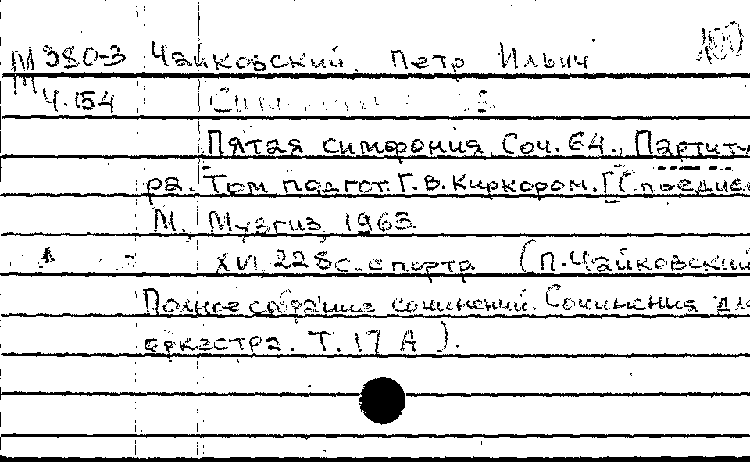 М Э80-3 Чайковский, Петр Ильич
М Ч.154
Пятая симфония. Соч. 64. Партиту
ра. Том подгот. Г. В. Киркором. [С предисл
М., Музгиз, 1963
XVI, 228с. с портр. (П. Чайковский
Полное собрание сочинений. Сочинения дл
оркестра. Т. 17 А).